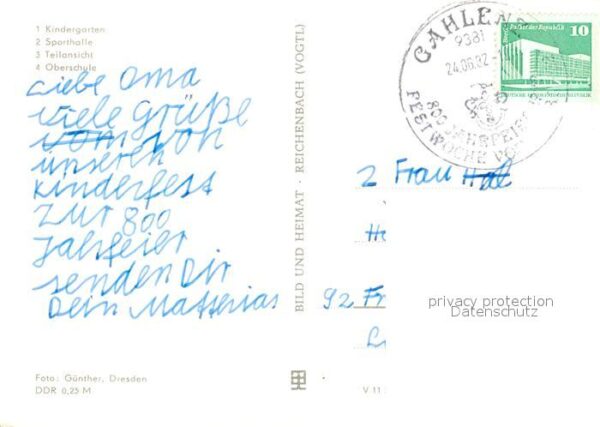 1 Kindergarten
2 Sporthalle
3 Teilansicht
4 Oberschule
Liebe Oma
viele Grüße
vom von
unseren
Kinderfest
zur 800
Jahrfeier
senden Dir
Dein Matterias
Foto: Günther, Dresden
DDR 0,25 M
BILD UND HEIMAT · REICHENBACH (VOGTL)
GAHLENZ
9381
24.06.82
800 JAHRFEIER
FESTWOCHE VOM
Palast der Republik
10
DEUTSCHE DEMOKRATISCHE REPUBLIK
2 Frau
92 Fr
privacy protection
Datenschutz
V 11